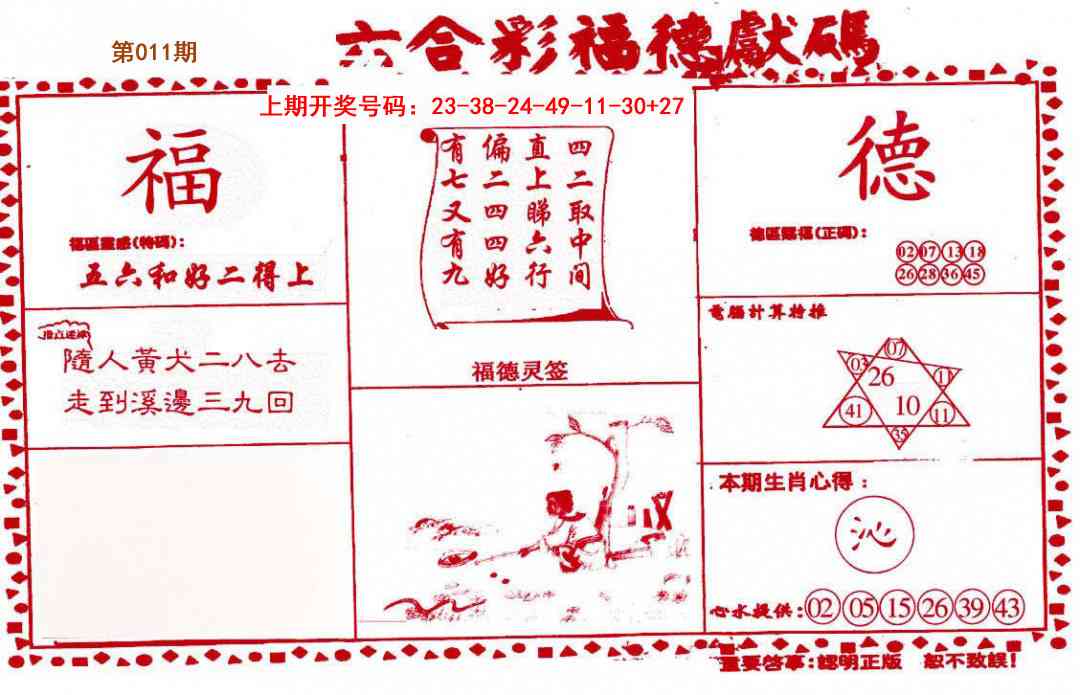 第011期
六合彩福德獻碼
上期开奖号码：23-38-24-49-11-30+27
福
福區靈感(特碼)：
五六和好二得上
隨人黃犬二八去
走到溪邊三九回
四二取中间
直上睇六行
偏二四四好
有七又有九
福德灵签
德
德區賜福(正碼)：
02 07 13 18
26 28 36 45
電腦計算特推
07
03 26 11
41 10 11
35
本期生肖心得：
沁
心水提供：02 05 15 26 39 43
重要啓事：認明正版 恕不致誤！